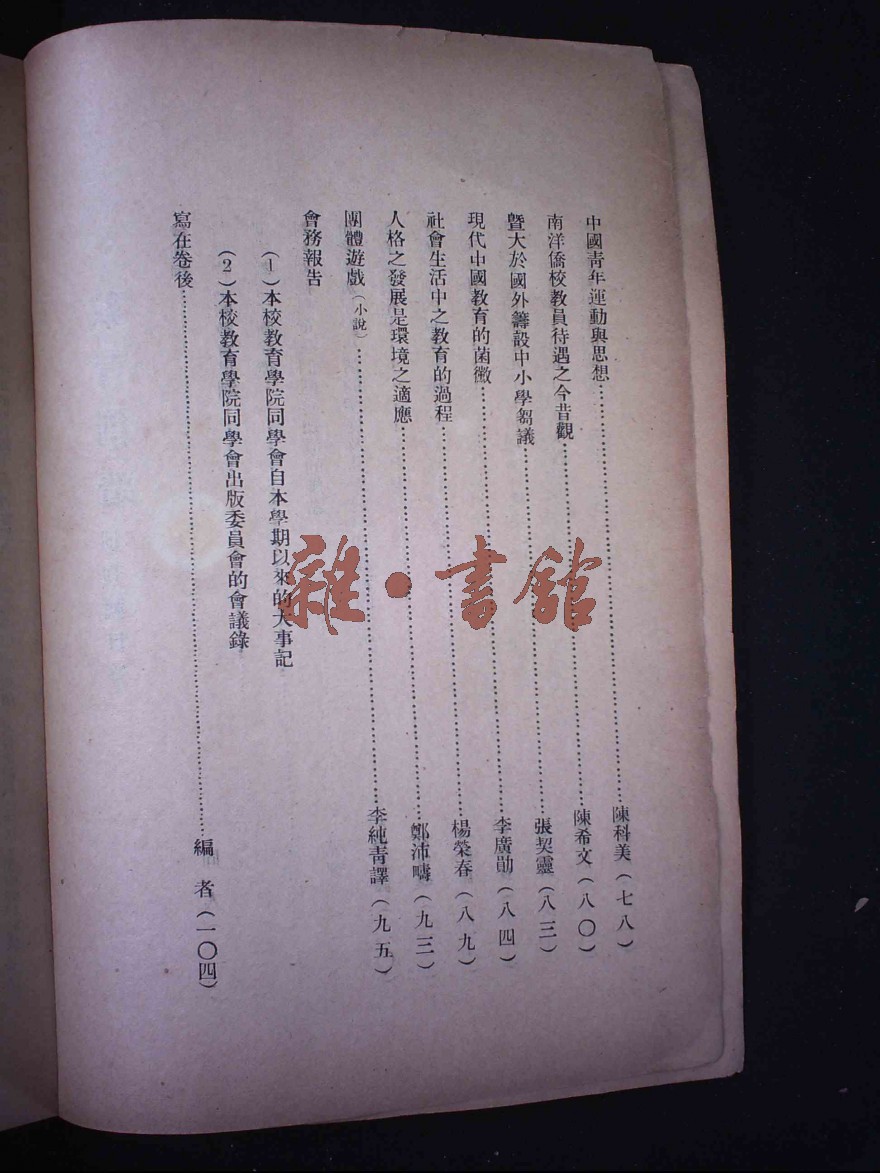 中國靑年運動與思想……陳科美（七八）
南洋僑校敎員待遇之今昔觀……陳希文（八〇）
曁大於國外籌設中小學芻議……張契靈（八三）
現代中國敎育的菌黴……李廣勛（八四）
社會生活中之敎育的過程……楊榮春（八九）
人格之發展是環境之適應……鄭沛疇（九三）
團體遊戲（小說）……李純靑譯（九五）
會務報告
（1）本校敎育學院同學會自本學期以來的大事記
（2）本校敎育學院同學會出版委員會的會議錄
寫在卷後……編者（一〇四）
雜·書館